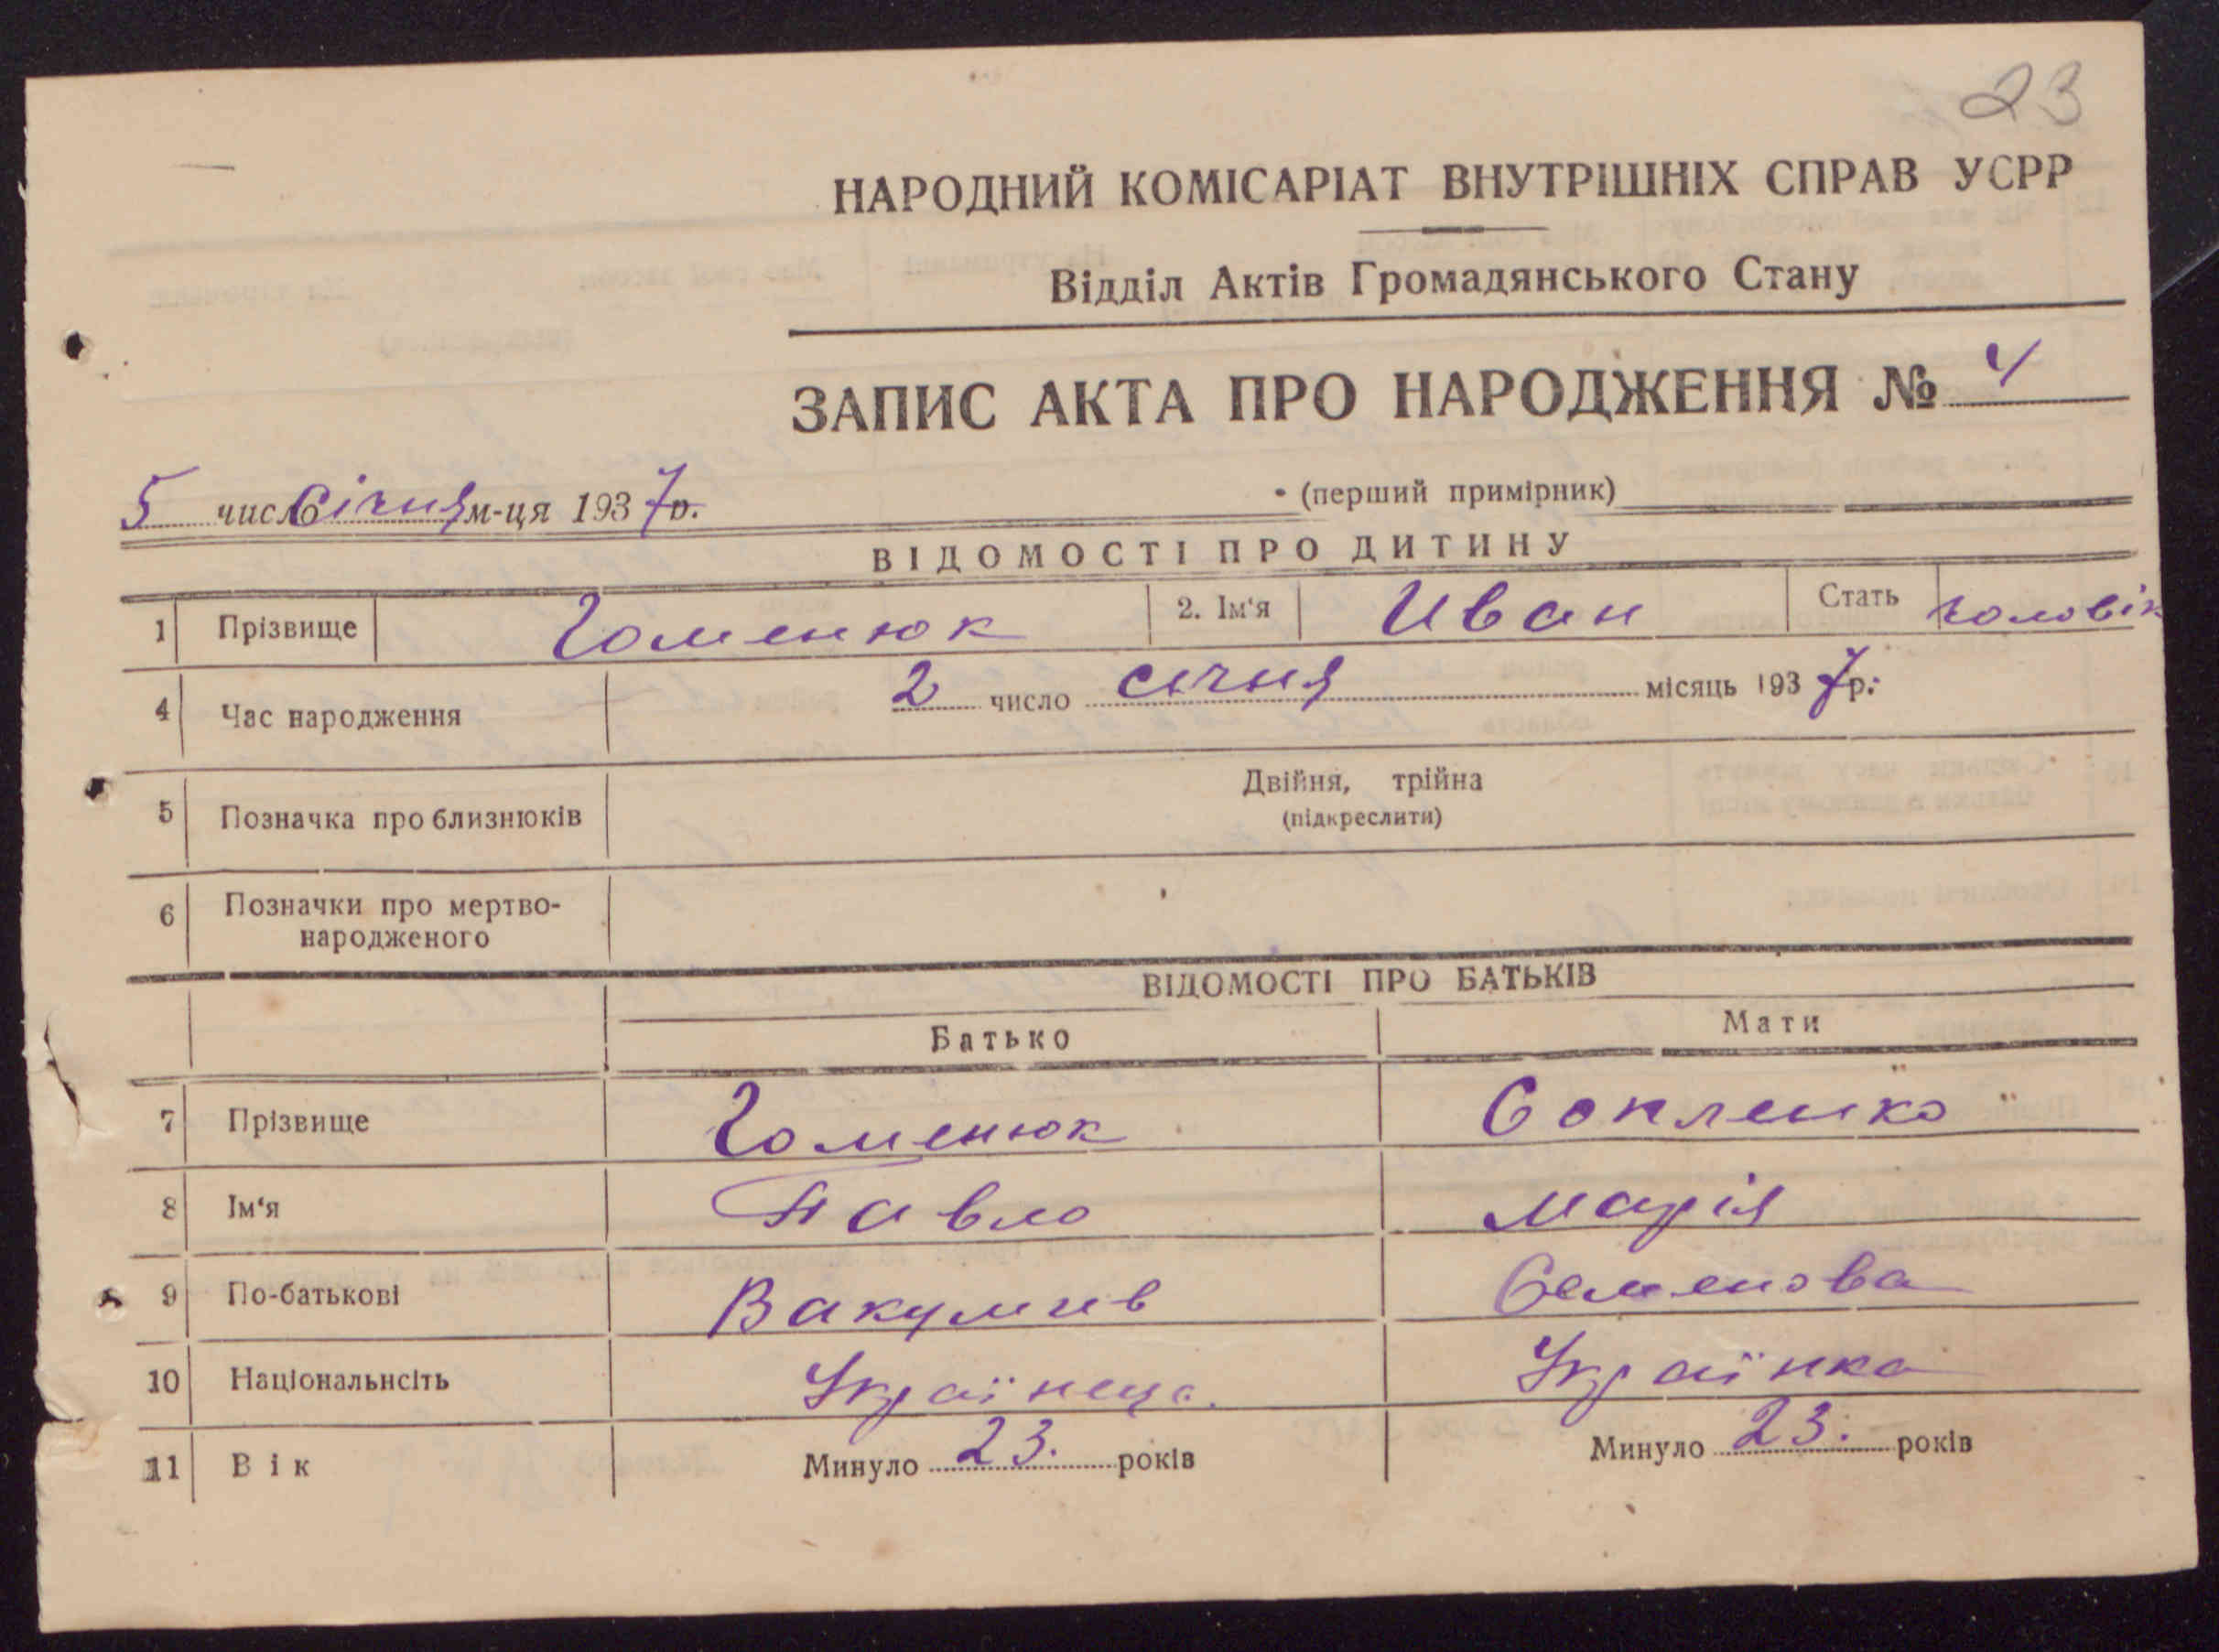 23
НАРОДНИЙ КОМІСАРІАТ ВНУТРІШНІХ СПРАВ УСРР
Відділ Актів Громадянського Стану
ЗАПИС АКТА ПРО НАРОДЖЕННЯ № 4
5 число січня м-ця 1937р.
(перший примірник)
ВІДОМОСТІ ПРО ДИТИНУ
1 Прізвище Гоменюк 2. Ім'я Иван Стать чоловік
4 Час народження 2 число січня місяць 1937р.
5 Позначка про близнюків Двійня, трійна
(підкреслити)
6 Позначки про мертво-
народженого
ВІДОМОСТІ ПРО БАТЬКІВ
Батько Мати
7 Прізвище Гоменюк
8 Ім'я Павло Марія
9 По-батькові Семенова
10 Національнсіть Українець Українка
11 Вік Минуло 23. років Минуло 23. років